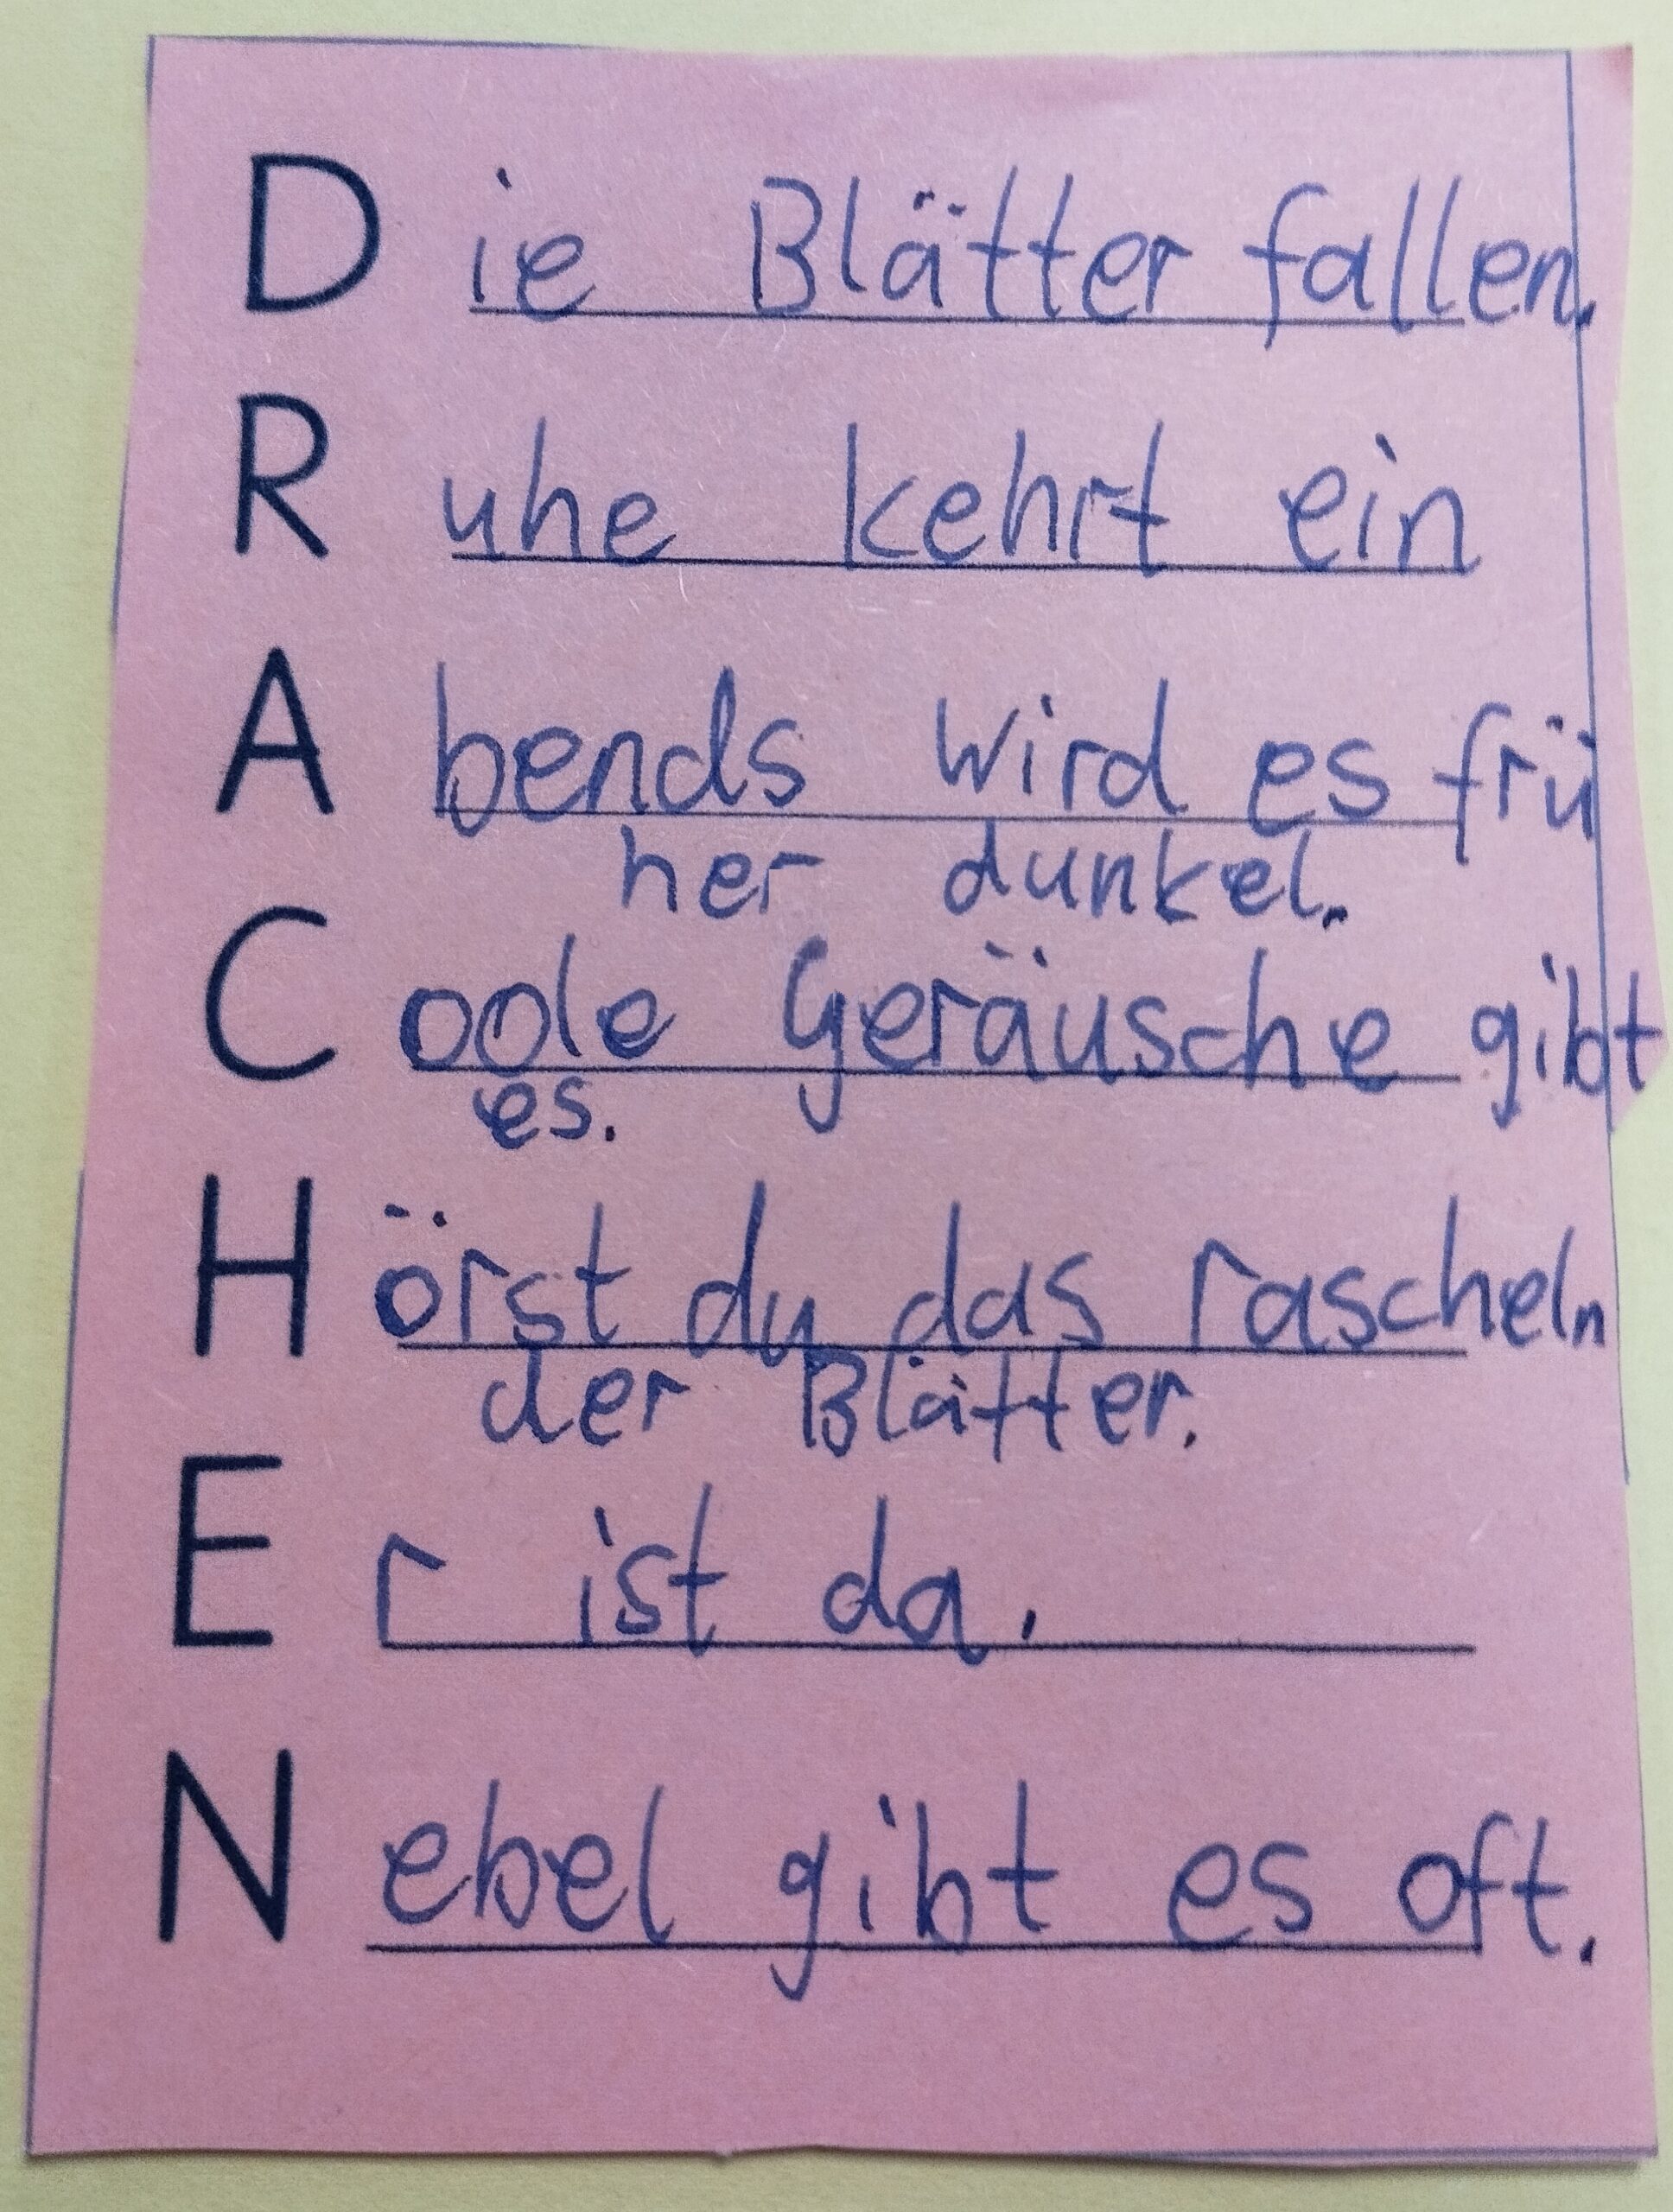 Die Blätter fallen.
Ruhe kehrt ein
Abends wird es frü
her dunkel.
Coole Geräusche gibt
es.
Hörst du das rascheln
der Blätter.
Er ist da.
Nebel gibt es oft.